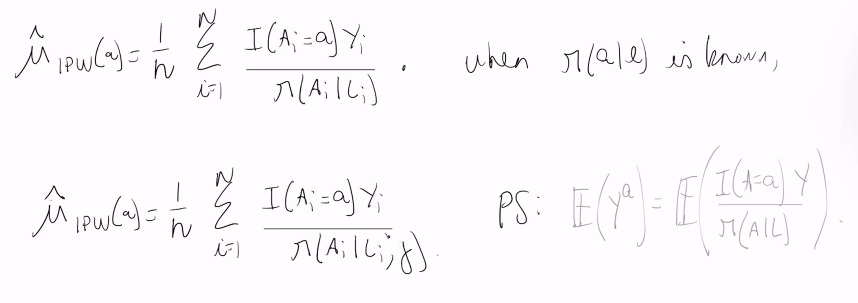 μ̂_IPW(a) = 1/n Σ_{i=1}^{n} I(A_i=a) Y_i / π(A_i|L_i) . when π(a|l) is known,
μ̂_IPW(a) = 1/n Σ_{i=1}^{n} I(A_i=a) Y_i / π(A_i|L_i; γ) . PS: 𝔼(Y^a) = 𝔼( I(A=a) Y / π(A|L) ) .